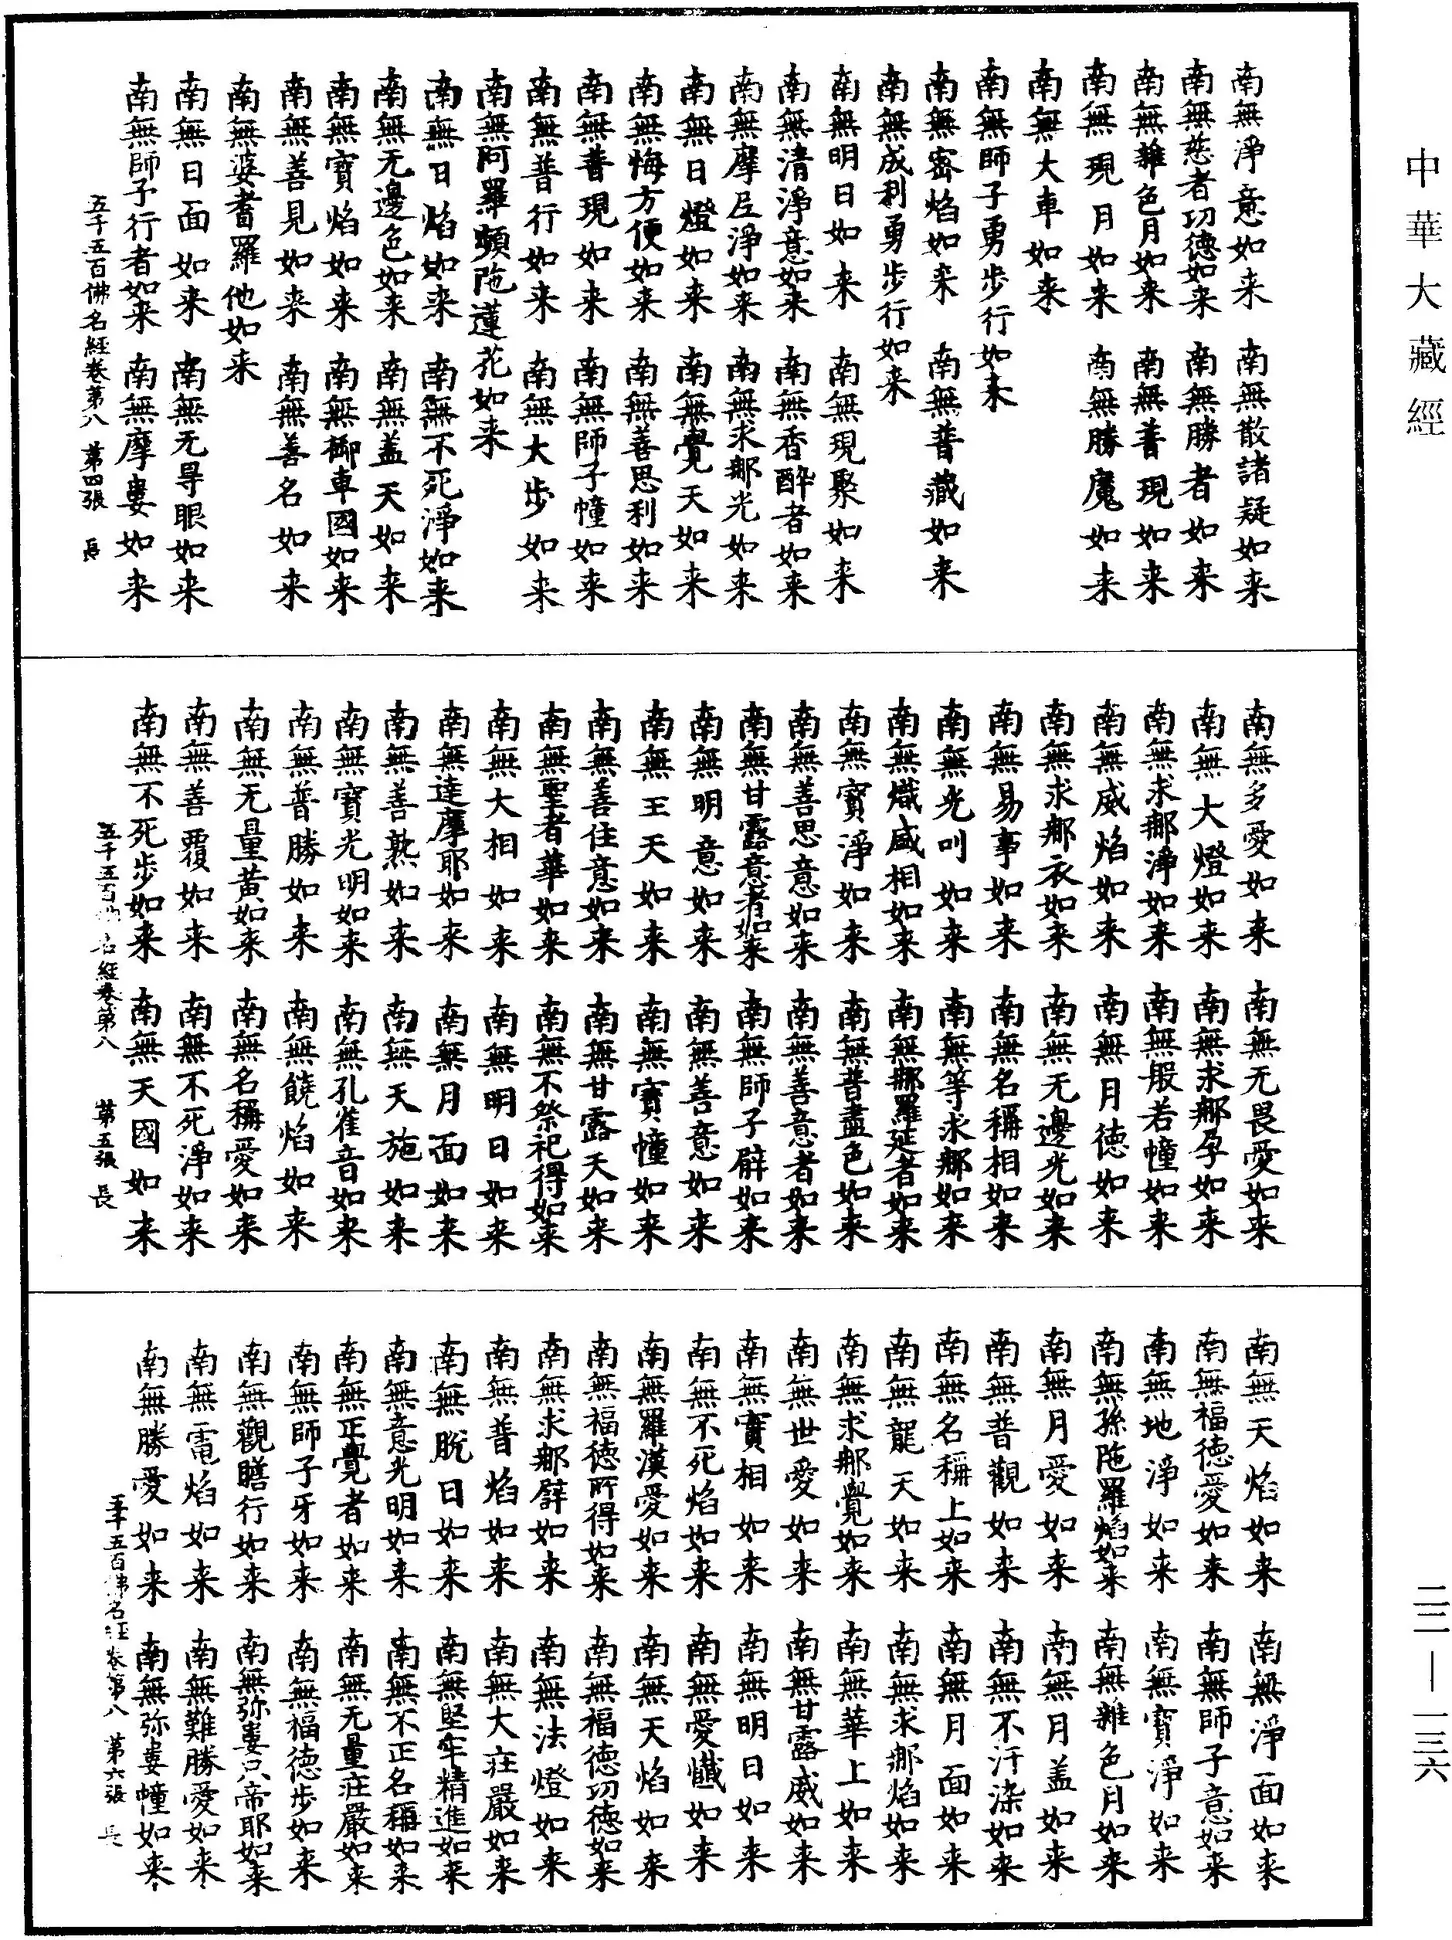 中華大藏經
南無淨意如来 南無散諸疑如来
南無慈者功德如来 南無勝者如来
南無雜色月如来 南無普現如来
南無現月如来 南無勝魔如来
南無大車如来
南無師子勇步行如来
南無密焰如来 南無普藏如来
南無成利勇步行如来
南無明日如来 南無現聚如来
南無清淨意如来 南無香醉者如来
南無摩尼淨如来 南無求那光如来
南無日燈如来 南無覺天如来
南無悔方便如来 南無善思利如来
南無普現如来 南無師子幢如来
南無普行如来 南無大步如来
南無阿羅頻陁蓮花如来
南無日焰如来 南無不死淨如来
南無无邊色如来 南無盖天如来
南無寶焰如来 南無御車國如来
南無善見如来 南無善名如来
南無婆耆羅他如来
南無日面如来 南無无导眼如来
南無師子行者如来 南無摩婁如来
五千五百佛名經卷第八 第四張 長
南無多愛如来 南無无畏愛如来
南無大燈如来 南無求那孕如来
南無求那淨如来 南無般若幢如来
南無威焰如来 南無月德如来
南無求那衣如来 南無无邊光如来
南無易事如来 南無名稱相如来
南無光叫如来 南無等求那如来
南無熾盛相如来 南無那羅延者如来
南無寶淨如来 南無普盡色如来
南無善思意如来 南無善意者如来
南無甘露意者如来 南無師子臂如来
南無明意如来 南無善意如来
南無王天如来 南無寶幢如来
南無善住意如来 南無甘露天如来
南無聖者華如来 南無不祭祀得如来
南無大相如来 南無明日如来
南無達摩耶如来 南無月面如来
南無善熟如来 南無天施如来
南無寶光明如来 南無孔雀音如来
南無普勝如来 南無饒焰如来
南無无量黄如来 南無名稱愛如来
南無善覆如来 南無不死淨如来
南無不死步如来 南無天國如来
五千五百佛名經卷第八 第五張 長
南無天焰如来 南無淨面如来
南無福德愛如来 南無師子意如来
南無地淨如来 南無寶淨如来
南無孫陁羅焰如来 南無雜色月如来
南無月愛如来 南無月盖如来
南無普觀如来 南無不汙染如来
南無名稱上如来 南無月面如来
南無龍天如来 南無求那焰如来
南無求那覺如来 南無華上如来
南無世愛如来 南無甘露威如来
南無寶相如来 南無明日如来
南無不死焰如来 南無愛懺如来
南無羅漢愛如来 南無天焰如来
南無福德所得如来 南無福德功德如来
南無求那臂如来 南無法燈如来
南無普焰如来 南無大莊嚴如来
南無脫日如来 南無堅牢精進如来
南無意光明如来 南無不正名稱如来
南無正覺者如来 南無无量莊嚴如来
南無師子牙如来 南無福德步如来
南無觀瞻行如来 南無弥婁只帝耶如来
南無電焰如来 南無難勝愛如来
南無勝愛如来 南無弥婁幢如来
五千五百佛名經卷第八 第六張 長
二二—一三六